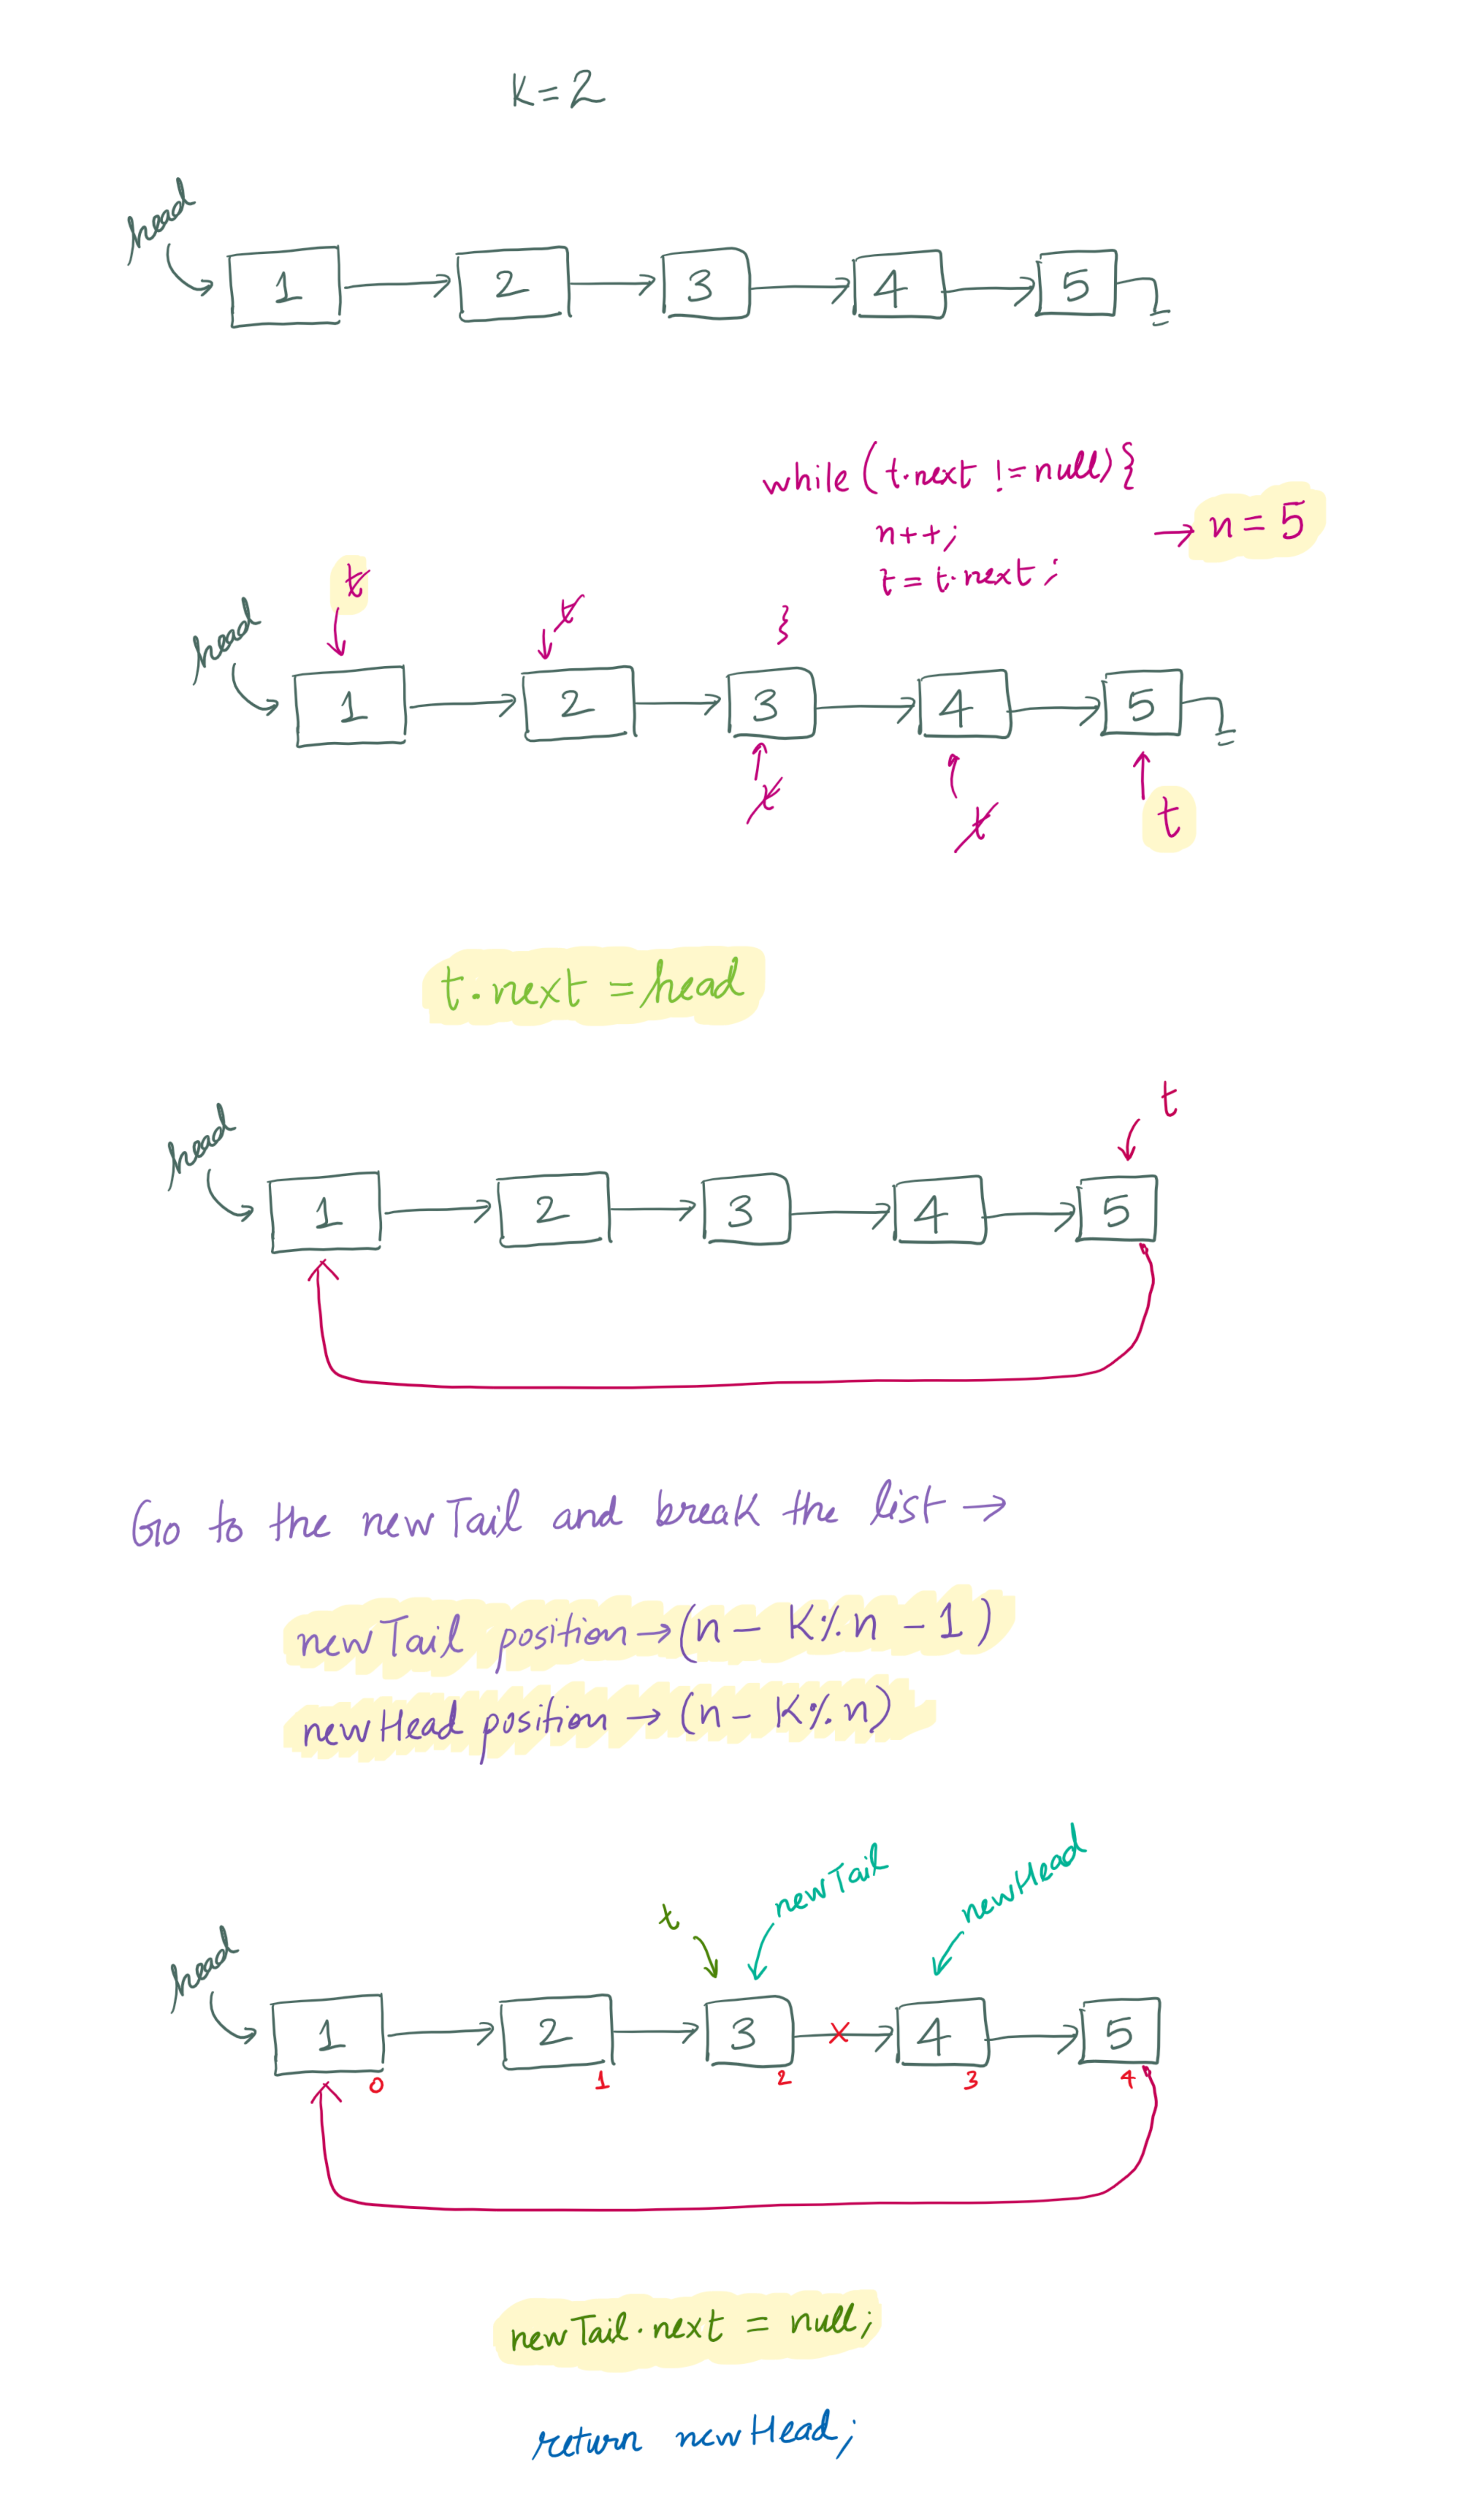 K=2
head
1 2 3 4 5
while (t.next != null) {
n++;
t = t.next ;
}
→ n = 5
t
t
head
1 2 3 4 5
t
t
t
t.next = head
t
head
1 2 3 4 5
Go to the newTail and break the list →
newTail position → (n - K % n - 1)
newHead position → (n - K % n)
t
newTail
newHead
head
1 2 3 4 5
0 1 2 3 4
newTail.next = null;
return newHead;